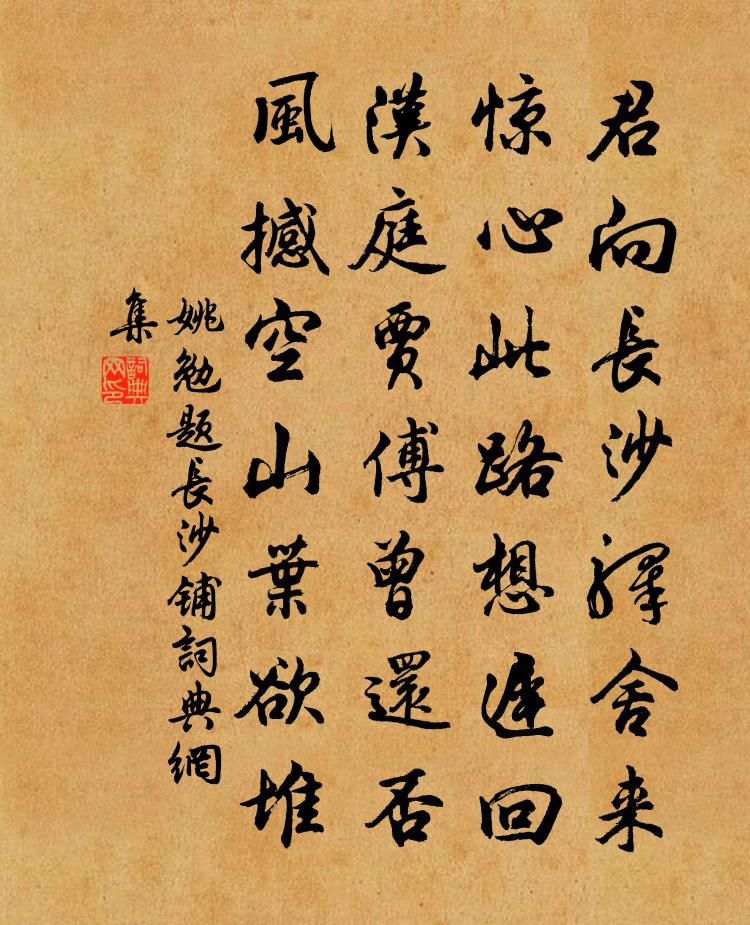 君向長沙驛舍来
惊心此路想遲回
漢庭賈傅曾還否
風撼空山葉欲堆
姚勉題長沙鋪詞典網
集
詞典网印